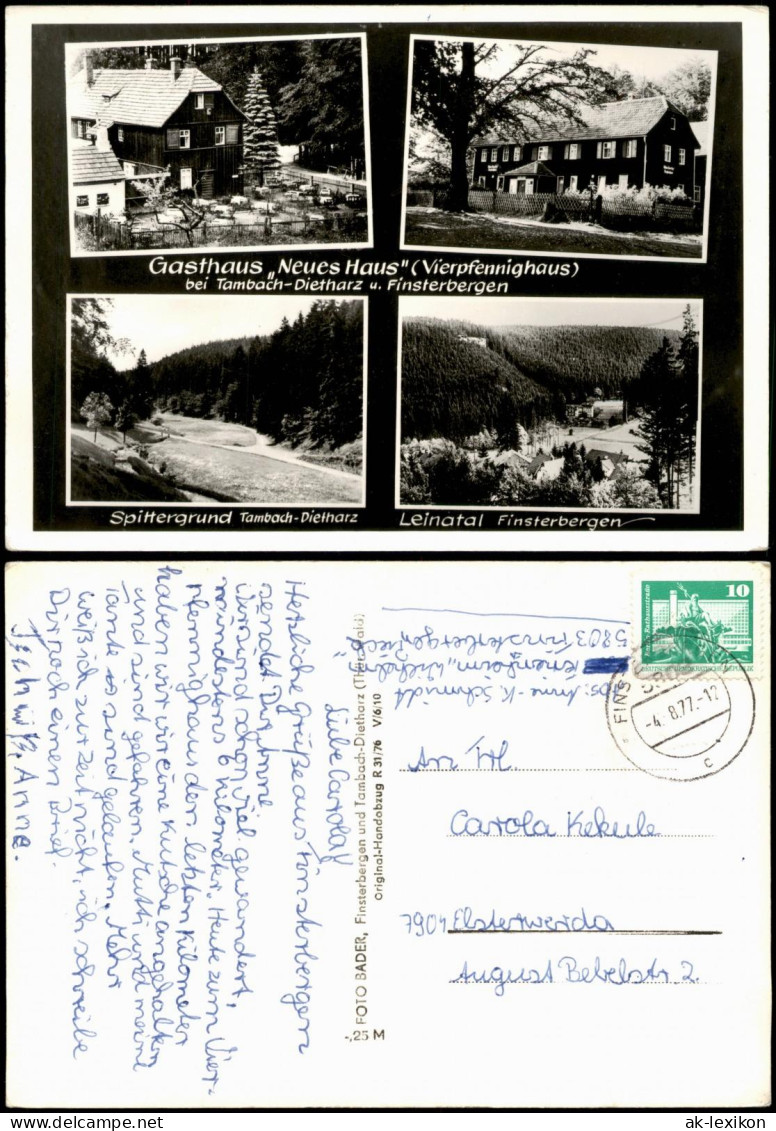 Gasthaus „Neues Haus" (Vierpfennighaus)
bei Tambach-Dietharz u. Finsterbergen
Spittergrund Tambach-Dietharz
Leinatal Finsterbergen
Liebe Carola!
Herzliche Grüße aus Finsterbergen
sendet Dir Anne.
Wir sind schon viel gewandert,
mindestens 6 Kilometer. Heute zum Vier-
pfennighaus den letzten Kilometer
haben wir wir eine Kutsche angehalten
und sind gefahren. Mutti und meine
Tante sind gelaufen. Mehr
weiß ich zur Zeit nicht, ich schreibe
Dir noch einen Brief.
Tschüß, Anne.
FOTO BADER, Finsterbergen und Tambach-Dietharz (Thür. Wald)
Original-Handabzug R 31/76 V/6/10
-,25 M
Abs.: Anne-K. Schmidt
Ferienheim „Wilhelm Pieck"
5803 Finsterbergen
10
DEUTSCHE DEMOKRATISCHE REPUBLIK
-4.8.77.-12
c
An Frl.
Carola Kekule
7904 Elsterwerda
August Bebelstr. 2
ak-lexikon